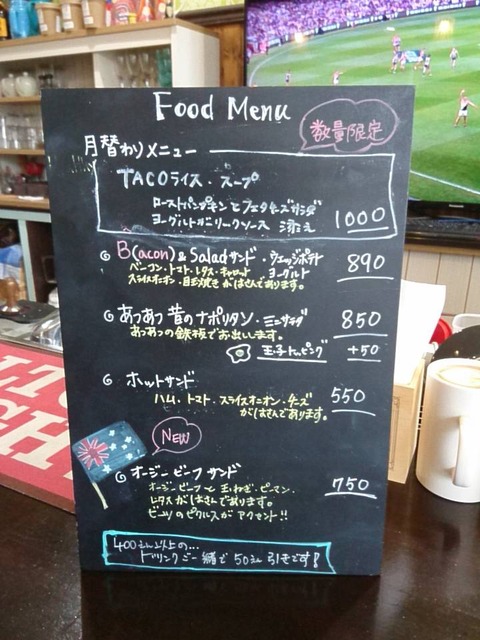 Food Menu
数量限定
月替わりメニュー
TACOライス・スープ
ローストパンプキンとフェタチーズサラダ
ヨーグルトガーリックソース 添え 1000
B(acon)&Saladサンド・ウェッジポテト 890
ベーコン・トマト・レタス・キャロット ヨーグルト
スライスオニオン・目玉焼きがはさんであります。
あつあつ昔のナポリタン・ミニサラダ 850
あつあつの鉄板でお出しします。
玉子トッピング +50
ホットサンド 550
ハム・トマト・スライスオニオン・チーズ
がはさんであります。
NEW
オージービーフサンド 750
オージービーフと玉ねぎ・ピーマン・
レタスがはさんであります。
ビーツのピクルスがアクセント!!
400えん以上の...
ドリンクご一緒で50えん引きです!